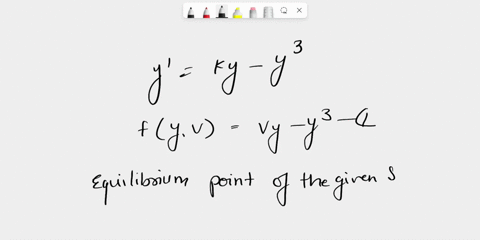 y' = ry - y³
f(y, v) = vy - y³ - ①
Equilibrium point of the given S